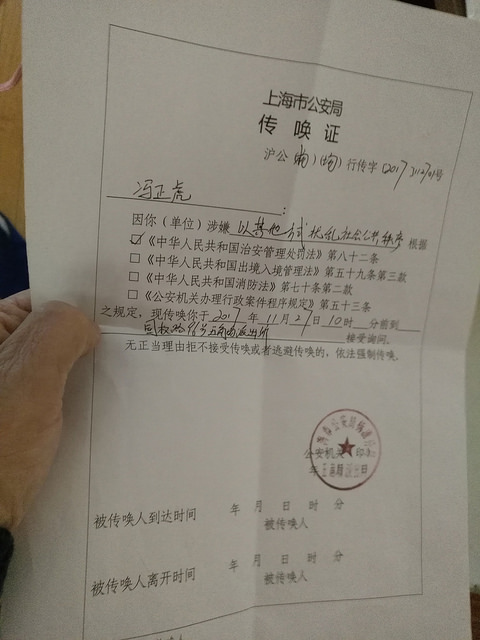 上海市公安局
传唤证
沪公（杨）（均）行传字〔2017〕号
冯正虎：
因你（单位）涉嫌 以其他方式扰乱社会公共秩序 根据
☑《中华人民共和国治安管理处罚法》第八十二条
□《中华人民共和国出境入境管理法》第五十九条第三款
□《中华人民共和国消防法》第七十条第二款
□《公安机关办理行政案件程序规定》第五十三条
之规定，现传唤你于 2017 年 11 月 27 日 10 时 分前到
96号五角场派出所 接受询问。
无正当理由拒不接受传唤或者逃避传唤的，依法强制传唤。
公安机关（印）
年 日
被传唤人到达时间 年 月 日 时 分
被传唤人
被传唤人离开时间 年 月 日 时 分
被传唤人